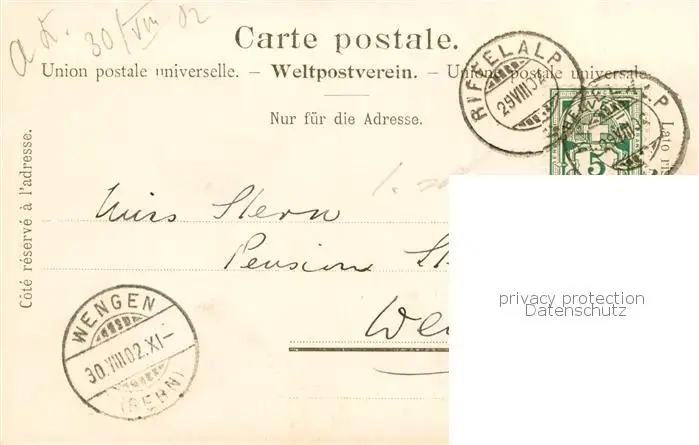 a L. 30/VIII 02
Carte postale.
Union postale universelle. – Weltpostverein. – Unione postale universale.
Nur für die Adresse.
Côté réservé à l'adresse.
Lato ri
RIFFELALP
29.VIII.02
5
Miss Stern
Pension St
We
WENGEN
30.VIII.02.XI–
(BERN)
privacy protection
Datenschutz